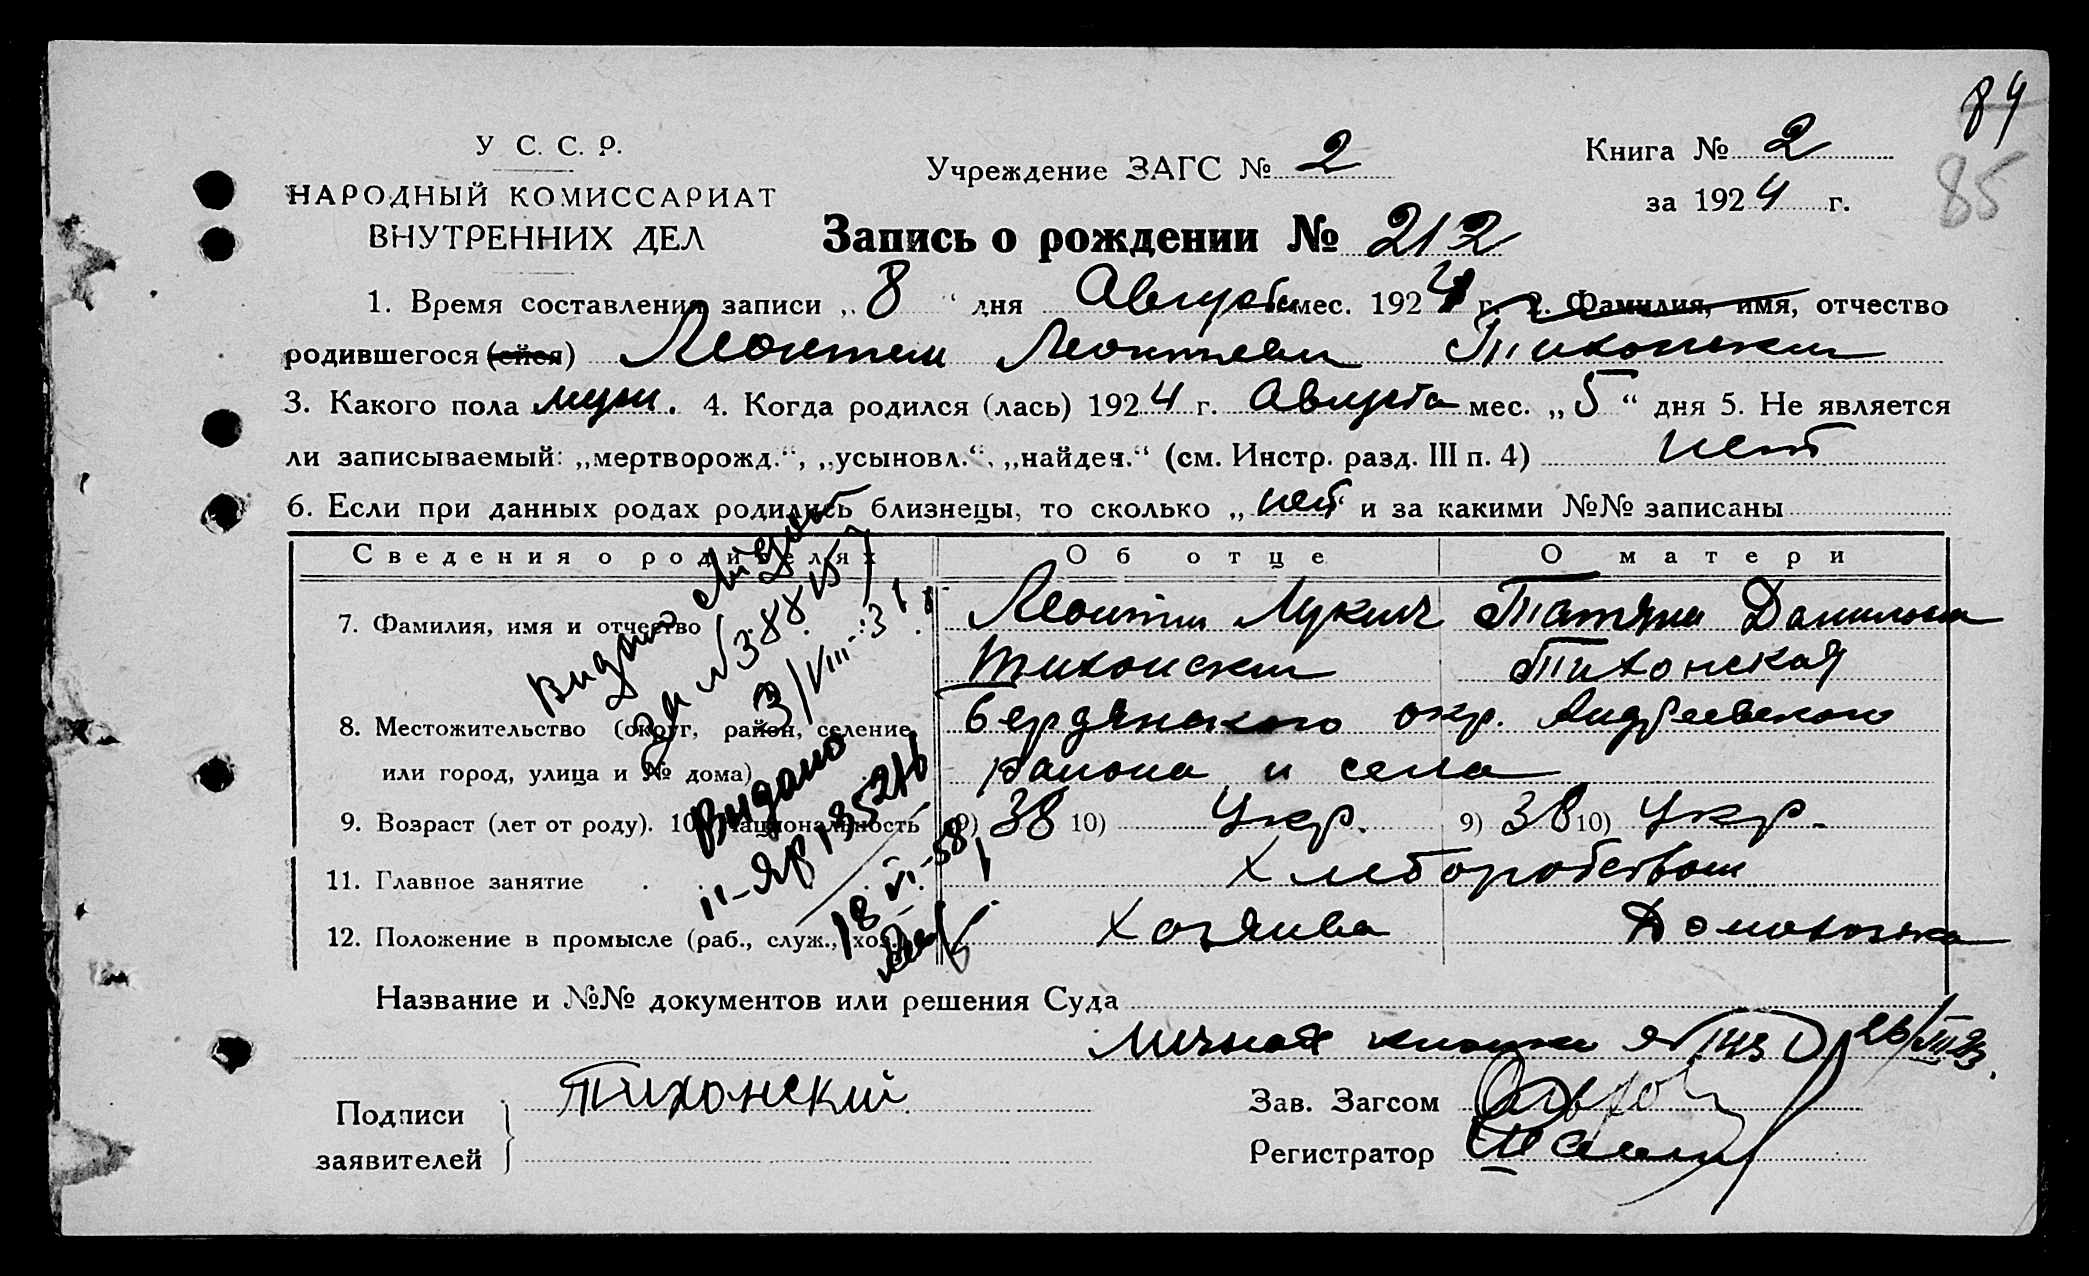 84
85
У С. С. Р.
НАРОДНЫЙ КОМИССАРИАТ
ВНУТРЕННИХ ДЕЛ
Учреждение ЗАГС № 2
Книга № 2
за 1924 г.
Запись о рождении № 212
1. Время составления записи „ 8 “ дня Августа мес. 1924 г. 2. Фамилия, имя, отчество
родившегося (ейся) Леонтий Леонтиеви Тихонский
3. Какого пола муж. 4. Когда родился (лась) 1924 г. Августа мес. „ 5 “ дня 5. Не является
ли записываемый: „мертворожд.“, „усыновл.“, „найден.“ (см. Инстр. разд. III п. 4) нет
6. Если при данных родах родились близнецы, то сколько „ нет и за какими №№ записаны
Сведения о родителях Об отце О матери
7. Фамилия, имя и отчество Леонтий Лукич Татяна Данилова
Тихонский Тихонская
8. Местожительство (округ, район, селение, Бердянского окр. Андреевского
или город, улица и № дома) района и села
9. Возраст (лет от роду). 10. Национальность 9) 38 10) Укр. 9) 38 10) Укр.
11. Главное занятие Хлеборобством
12. Положение в промысле (раб., служ., хоз. Хозяива Домохозяка
Видано
за № 38815
3/VIII-31
Видано
II-ЯР 135216
18.VI.58
Название и №№ документов или решения Суда
Личная книжка № 143 26/III 23.
Подписи
заявителей
Тихонский
Зав. Загсом
Регистратор